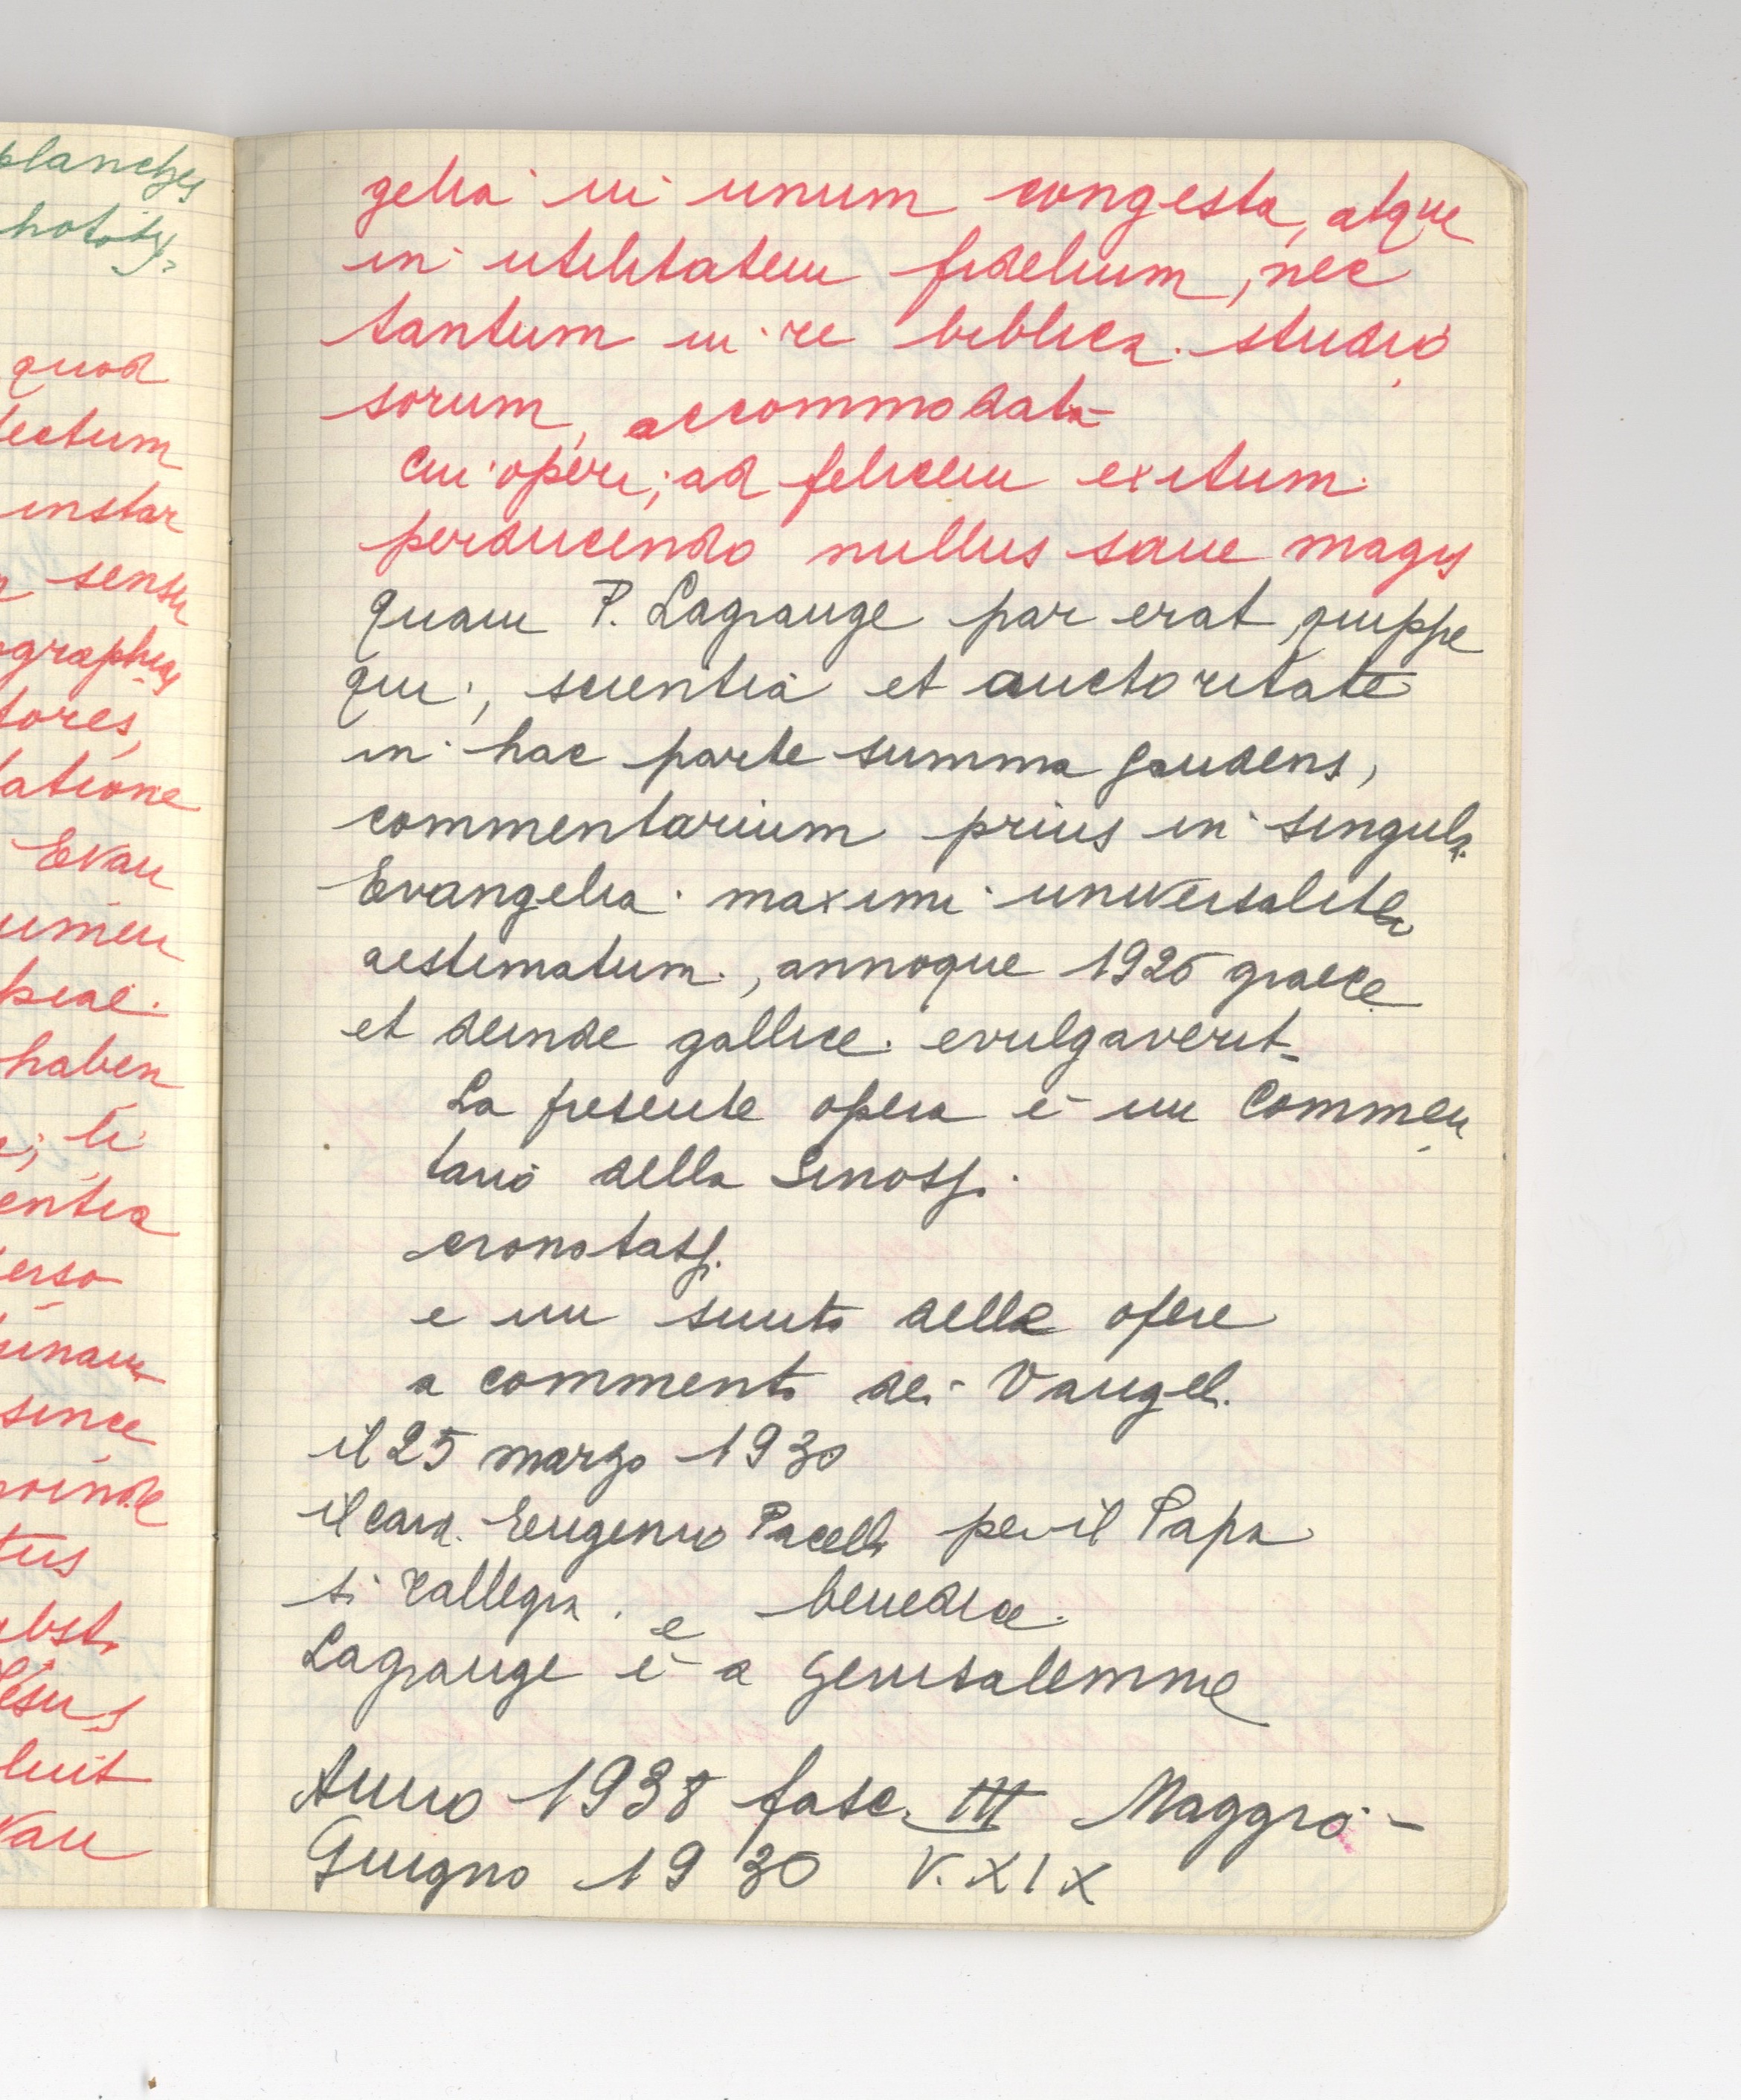 planches
quod
lectum
instar
sensu
graphias
tores,
tatione
Evan
umen
piae.
haben
entia
erso
since
proinde
tus
luit
van
gelia in unum congesta, atque
in utilitatem fidelium, nec
tantum in re biblica studio
sorum, accommodata
cui operi, ad felicem exitum
perducendo nullus sane magis
quam P. Lagrange par erat quippe
qui, scientia et auctoritate
in hac parte summa gaudens,
commentarium prius in singula
Evangelia maximi universaliter
aestimatum, annoque 1926 graece
et deinde gallice evulgaverit_
La presente opera è un Commen
tario della Sinossi
cronotassi
e un sunto delle opere
a commento dei Vangeli.
il 25 marzo 1930
il card. Eugenio Pacelli per il Papa
si rallegra e benedice.
Lagrange è a Gerusalemme
Anno 1938 fasc. III Maggio -
Giugno 1930 V. XIX